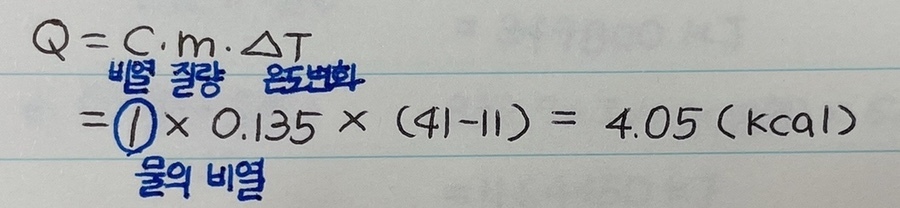 Q = C · m · ΔT
비열 질량 온도변화
= 1 × 0.135 × (41-11) = 4.05 (kcal)
물의 비열